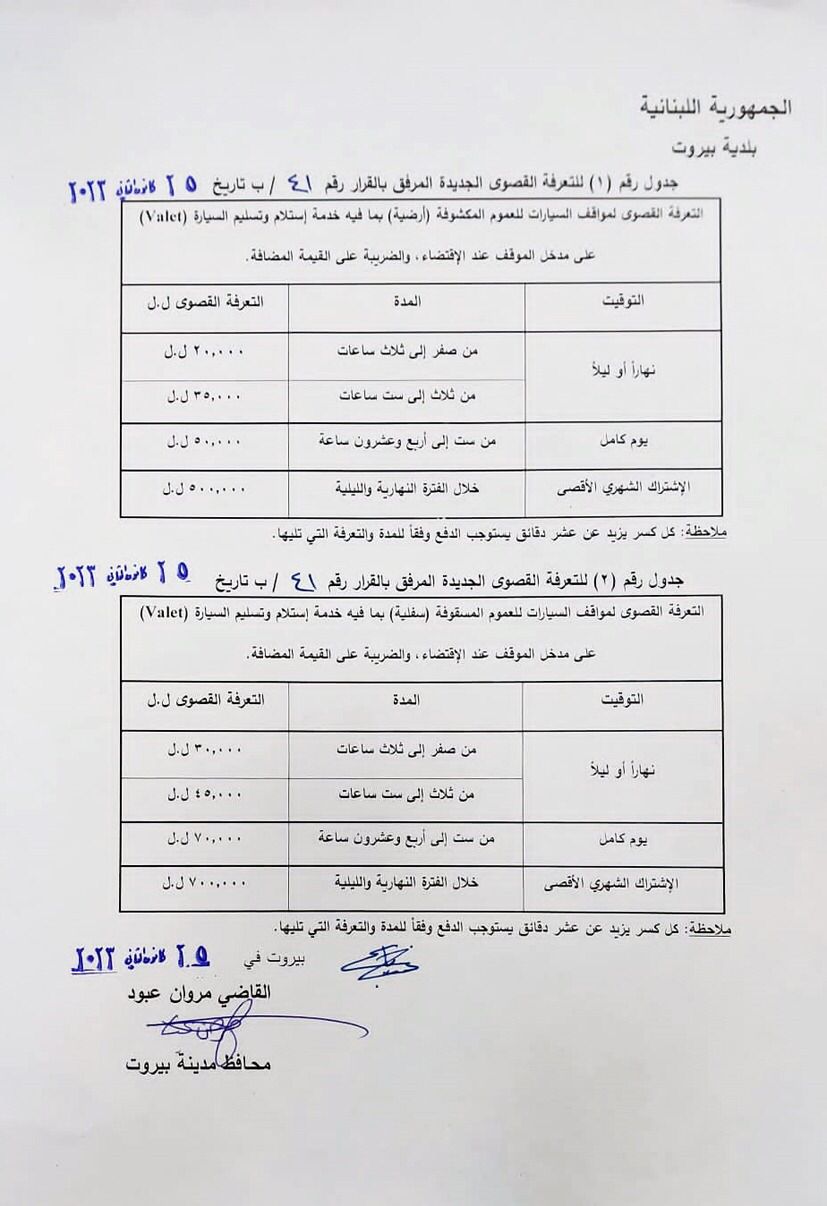 الجمهورية اللبنانية
بلدية بيروت
جدول رقم (١) للتعرفة القصوى الجديدة المرفق بالقرار رقم ٤١ / ب تاريخ ٢٥ كانون الثاني ٢٠٢٣
التعرفة القصوى لمواقف السيارات للعموم المكشوفة (أرضية) بما فيه خدمة إستلام وتسليم السيارة (Valet)
على مدخل الموقف عند الإقتضاء، والضريبة على القيمة المضافة.
التوقيت المدة التعرفة القصوى ل.ل
نهاراً أو ليلاً
من صفر إلى ثلاث ساعات ٢٠,٠٠٠ ل.ل
من ثلاث إلى ست ساعات ٣٥,٠٠٠ ل.ل
يوم كامل من ست إلى أربع وعشرون ساعة ٥٠,٠٠٠ ل.ل
الإشتراك الشهري الأقصى خلال الفترة النهارية والليلية ٥٠٠,٠٠٠ ل.ل
ملاحظة: كل كسر يزيد عن عشر دقائق يستوجب الدفع وفقاً للمدة والتعرفة التي تليها.
جدول رقم (٢) للتعرفة القصوى الجديدة المرفق بالقرار رقم ٤١ / ب تاريخ ٢٥ كانون الثاني ٢٠٢٣
التعرفة القصوى لمواقف السيارات للعموم المسقوفة (سفلية) بما فيه خدمة إستلام وتسليم السيارة (Valet)
على مدخل الموقف عند الإقتضاء، والضريبة على القيمة المضافة.
التوقيت المدة التعرفة القصوى ل.ل
نهاراً أو ليلاً
من صفر إلى ثلاث ساعات ٣٠,٠٠٠ ل.ل
من ثلاث إلى ست ساعات ٤٥,٠٠٠ ل.ل
يوم كامل من ست إلى أربع وعشرون ساعة ٧٠,٠٠٠ ل.ل
الإشتراك الشهري الأقصى خلال الفترة النهارية والليلية ٧٠٠,٠٠٠ ل.ل
ملاحظة: كل كسر يزيد عن عشر دقائق يستوجب الدفع وفقاً للمدة والتعرفة التي تليها.
بيروت في ٢٥ كانون الثاني ٢٠٢٣
القاضي مروان عبود
محافظ مدينة بيروت